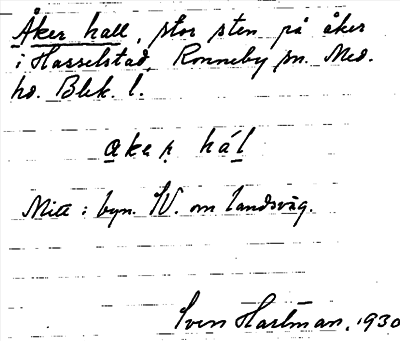 Åker hall, stor sten på åker
i Hasselstad, Ronneby sn. Med.
hd. Blek. l.
akeṛ hál
Mitt i byn. SV. om landsväg.
Sven Hartman, 1930